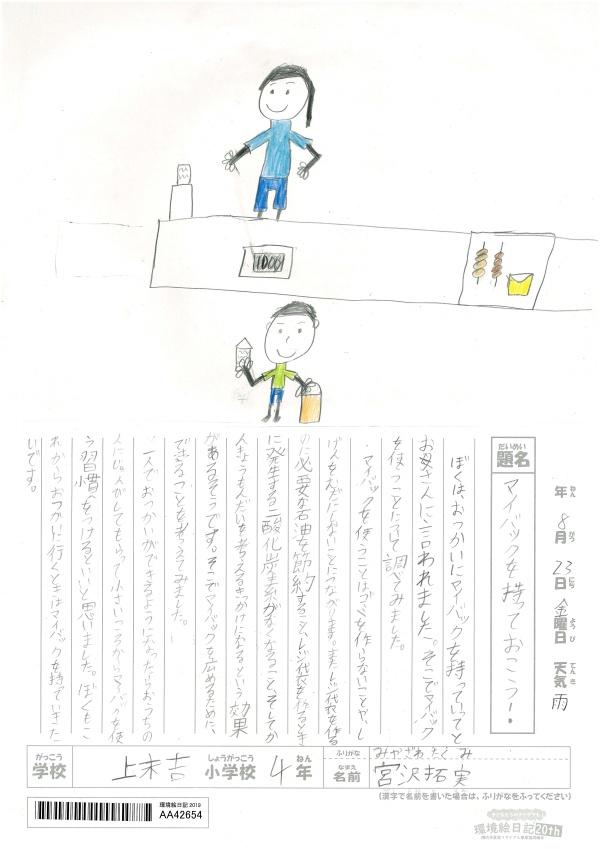 年 8月 23日 金曜日 天気 雨
ねん がつ にち ようび てんき
だいめい
題名
マイバックを持っておこう!
ぼくは、おつかいにマイバックを持っていってと
お母さんに言われました。そこでマイバック
を使うことについて調べてみました。
マイバックを使うことはゴミを作らないことや、し
げんをむだにしないことにつながります。またレジ袋を作る
のに必要な石油を節約すること、レジ袋を作るとき
に発生する二酸化炭素がなくなること、そしてか
んきょうもんだいを考えるきっかけになるという効果
があるそうです。そこでマイバックを広めるために、
できることを考えてみました。
一人でおつかいができるようになったらおうちの
人にしてもらって小さいころからマイバックを使
う習慣をつけるといいと思いました。ぼくもこ
れからおつかいに行くときはマイバックを持っていきた
いです。
がっこう しょうがっこう ねん
学校 上末吉 小学校 4年
ふりがな みやざわ たくみ
なまえ
名前 宮沢拓実
(漢字で名前を書いた場合は、ふりがなをふってください)
環境絵日記 2019
AA42654
環境絵日記20th